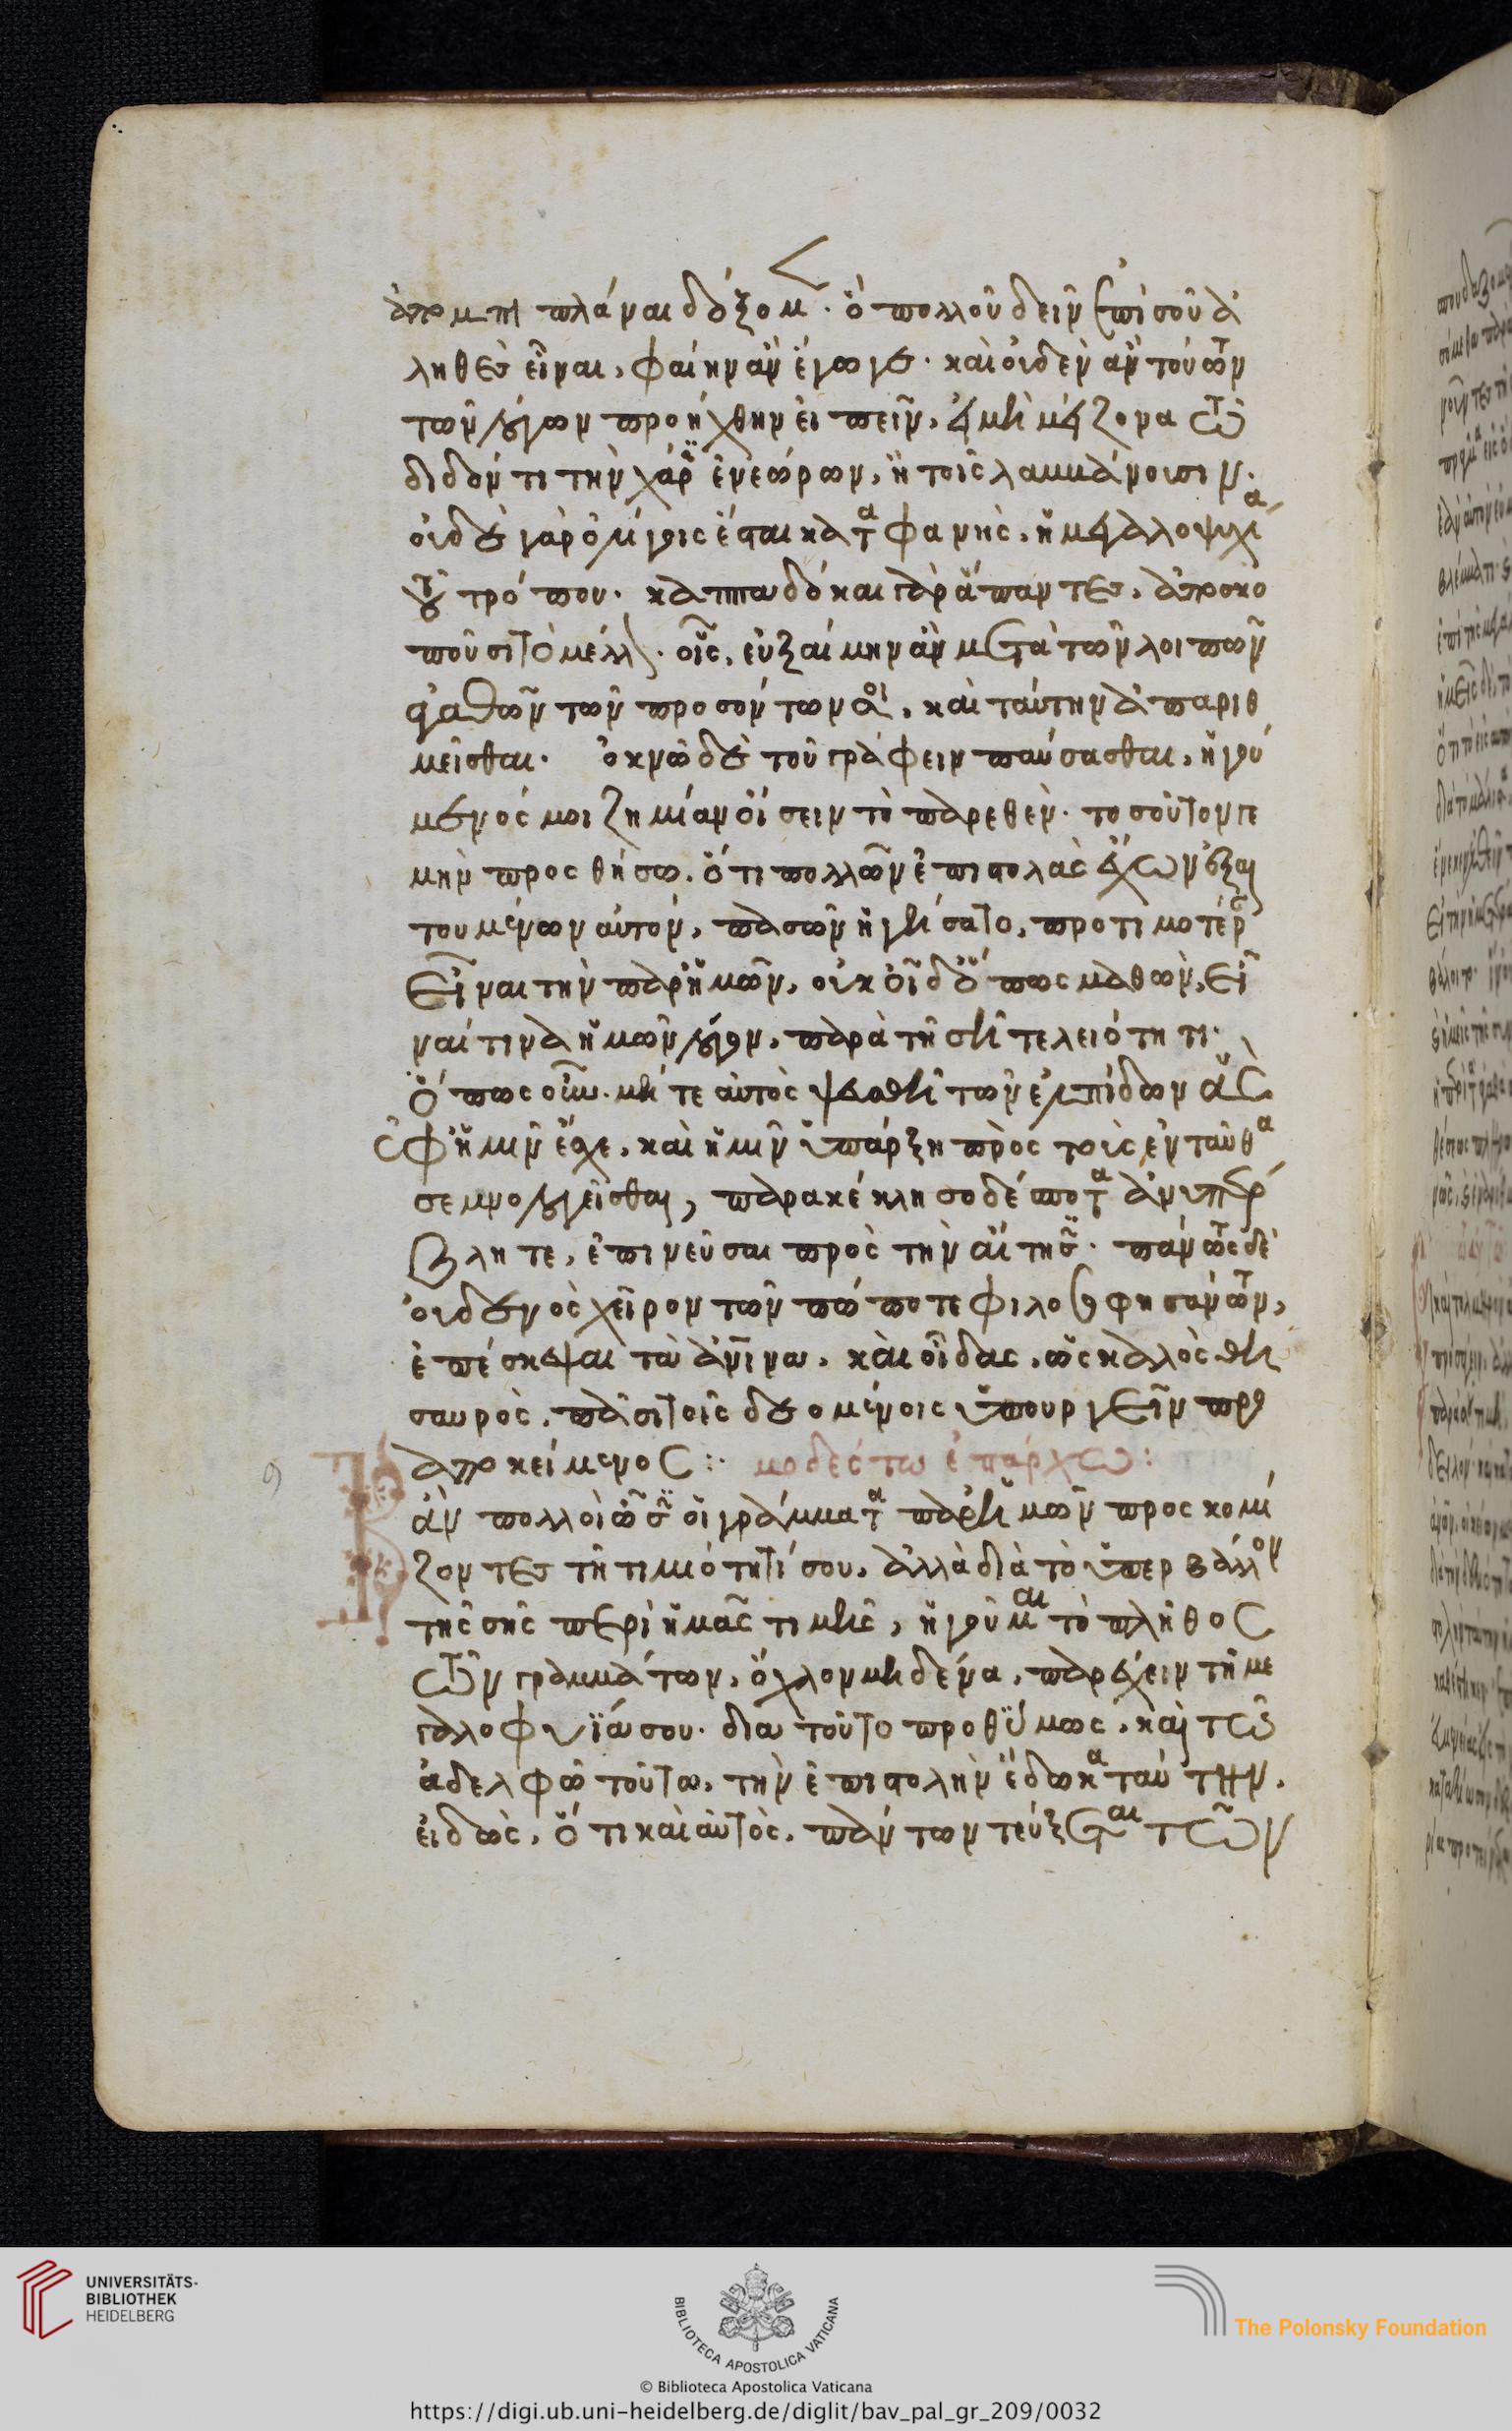 ἀποπιμπλάναι δόξομεν· ὁ πολλοῦ δεῖν ἐπὶ σοῦ ἀ
ληθὲς εἶναι, φαίην ἂν ἔγωγε· καὶ οὐδὲν ἂν τούτων
τῶν λόγων προήχθην εἰπεῖν, εἰ μὴ μείζονα τῶ
διδόντι τὴν χάριν ἐνεώρων, ἢ τοῖς λαμβάνουσιν.
οὐδὲ γὰρ ὀλίγοις ἔσται καταφανὴς, ἡ μεγαλοψυχία
τοῦ τρόπου· καππαδόκαι γὰρ ἅπαντες, ἀποσκο
ποῦσι τὸ μέλλον· οἷς, εὐξαίμην ἂν μετὰ τῶν λοιπῶν
ἀγαθῶν τῶν προσόντων σοι, καὶ ταύτην ἀπαριθ
μεῖσθαι· ὀκνῶ δὲ τοῦ γράφειν παύσασθαι, ἡγού
μενός μοι ζημίαν οἴσειν τὸ παρεθὲν· τοσοῦτον γε
μὴν προσθήσω. ὅτι πολλῶν ἐπιστολὰς ἔχων ἐξαι
τουμένων αὐτόν, πασῶν ἡγήσατο, προτιμοτέραν
εἶναι τὴν παρ' ἡμῶν, οὐκ οἶδ' ὅπως μαθὼν, εἶ
ναί τινα ἡμῶν λόγον, παρὰ τῆ σῆ τελειότητι·
ὅπως οὖν μήτε αὐτὸς ψευσθῆ τῶν ἐλπίδων ἃς
ἐφ' ἡμῖν ἔσχε, καὶ ἡμῖν ὑπάρξη πρὸς τοὺς ἐνταῦθα
σεμνολογεῖσθαι, παρακέκλησο δέσποτα ἀνυπέρ
βλητε, ἐπινεῦσαι πρὸς τὴν αἴτησιν· πάντως δὲ
οὐδενὸς χεῖρον τῶν πώποτε φιλοσοφησάντων,
ἐπέσκεψαι τὰ ἀνθρώπινα. καὶ οἶδας, ὡς καλὸς θη
σαυρὸς, πᾶσι τοῖς δεομένοις ὑπουργεῖν προ
αποκείμενος :· μοδέστω ἐπάρχω :
Κἀν πολλοὶ ὦσιν οἱ γράμματα παρ' ἡμῶν προσκομί
ζοντες τῆ τιμιότητί σου, ἀλλὰ διὰ τὸ ὑπερβάλλον
τῆς σῆς περὶ ἡμᾶς τιμῆς, ἡγοῦμαι τὸ πλῆθος
τῶν γραμμάτων, ὄχλον μηδένα, παρέχειν τῆ με
γαλοφυΐα σου· δια τοῦτο προθύμως, καὶ τῶ
ἀδελφῶ τούτω, τὴν ἐπιστολὴν ἔδωκα ταύτην.
εἰδὼς, ὅτι καὶ αὐτὸς, πάντων τεύξεται τῶν
UNIVERSITÄTS-
BIBLIOTHEK
HEIDELBERG
BIBLIOTECA APOSTOLICA VATICANA
© Biblioteca Apostolica Vaticana
The Polonsky Foundation
https://digi.ub.uni-heidelberg.de/diglit/bav_pal_gr_209/0032